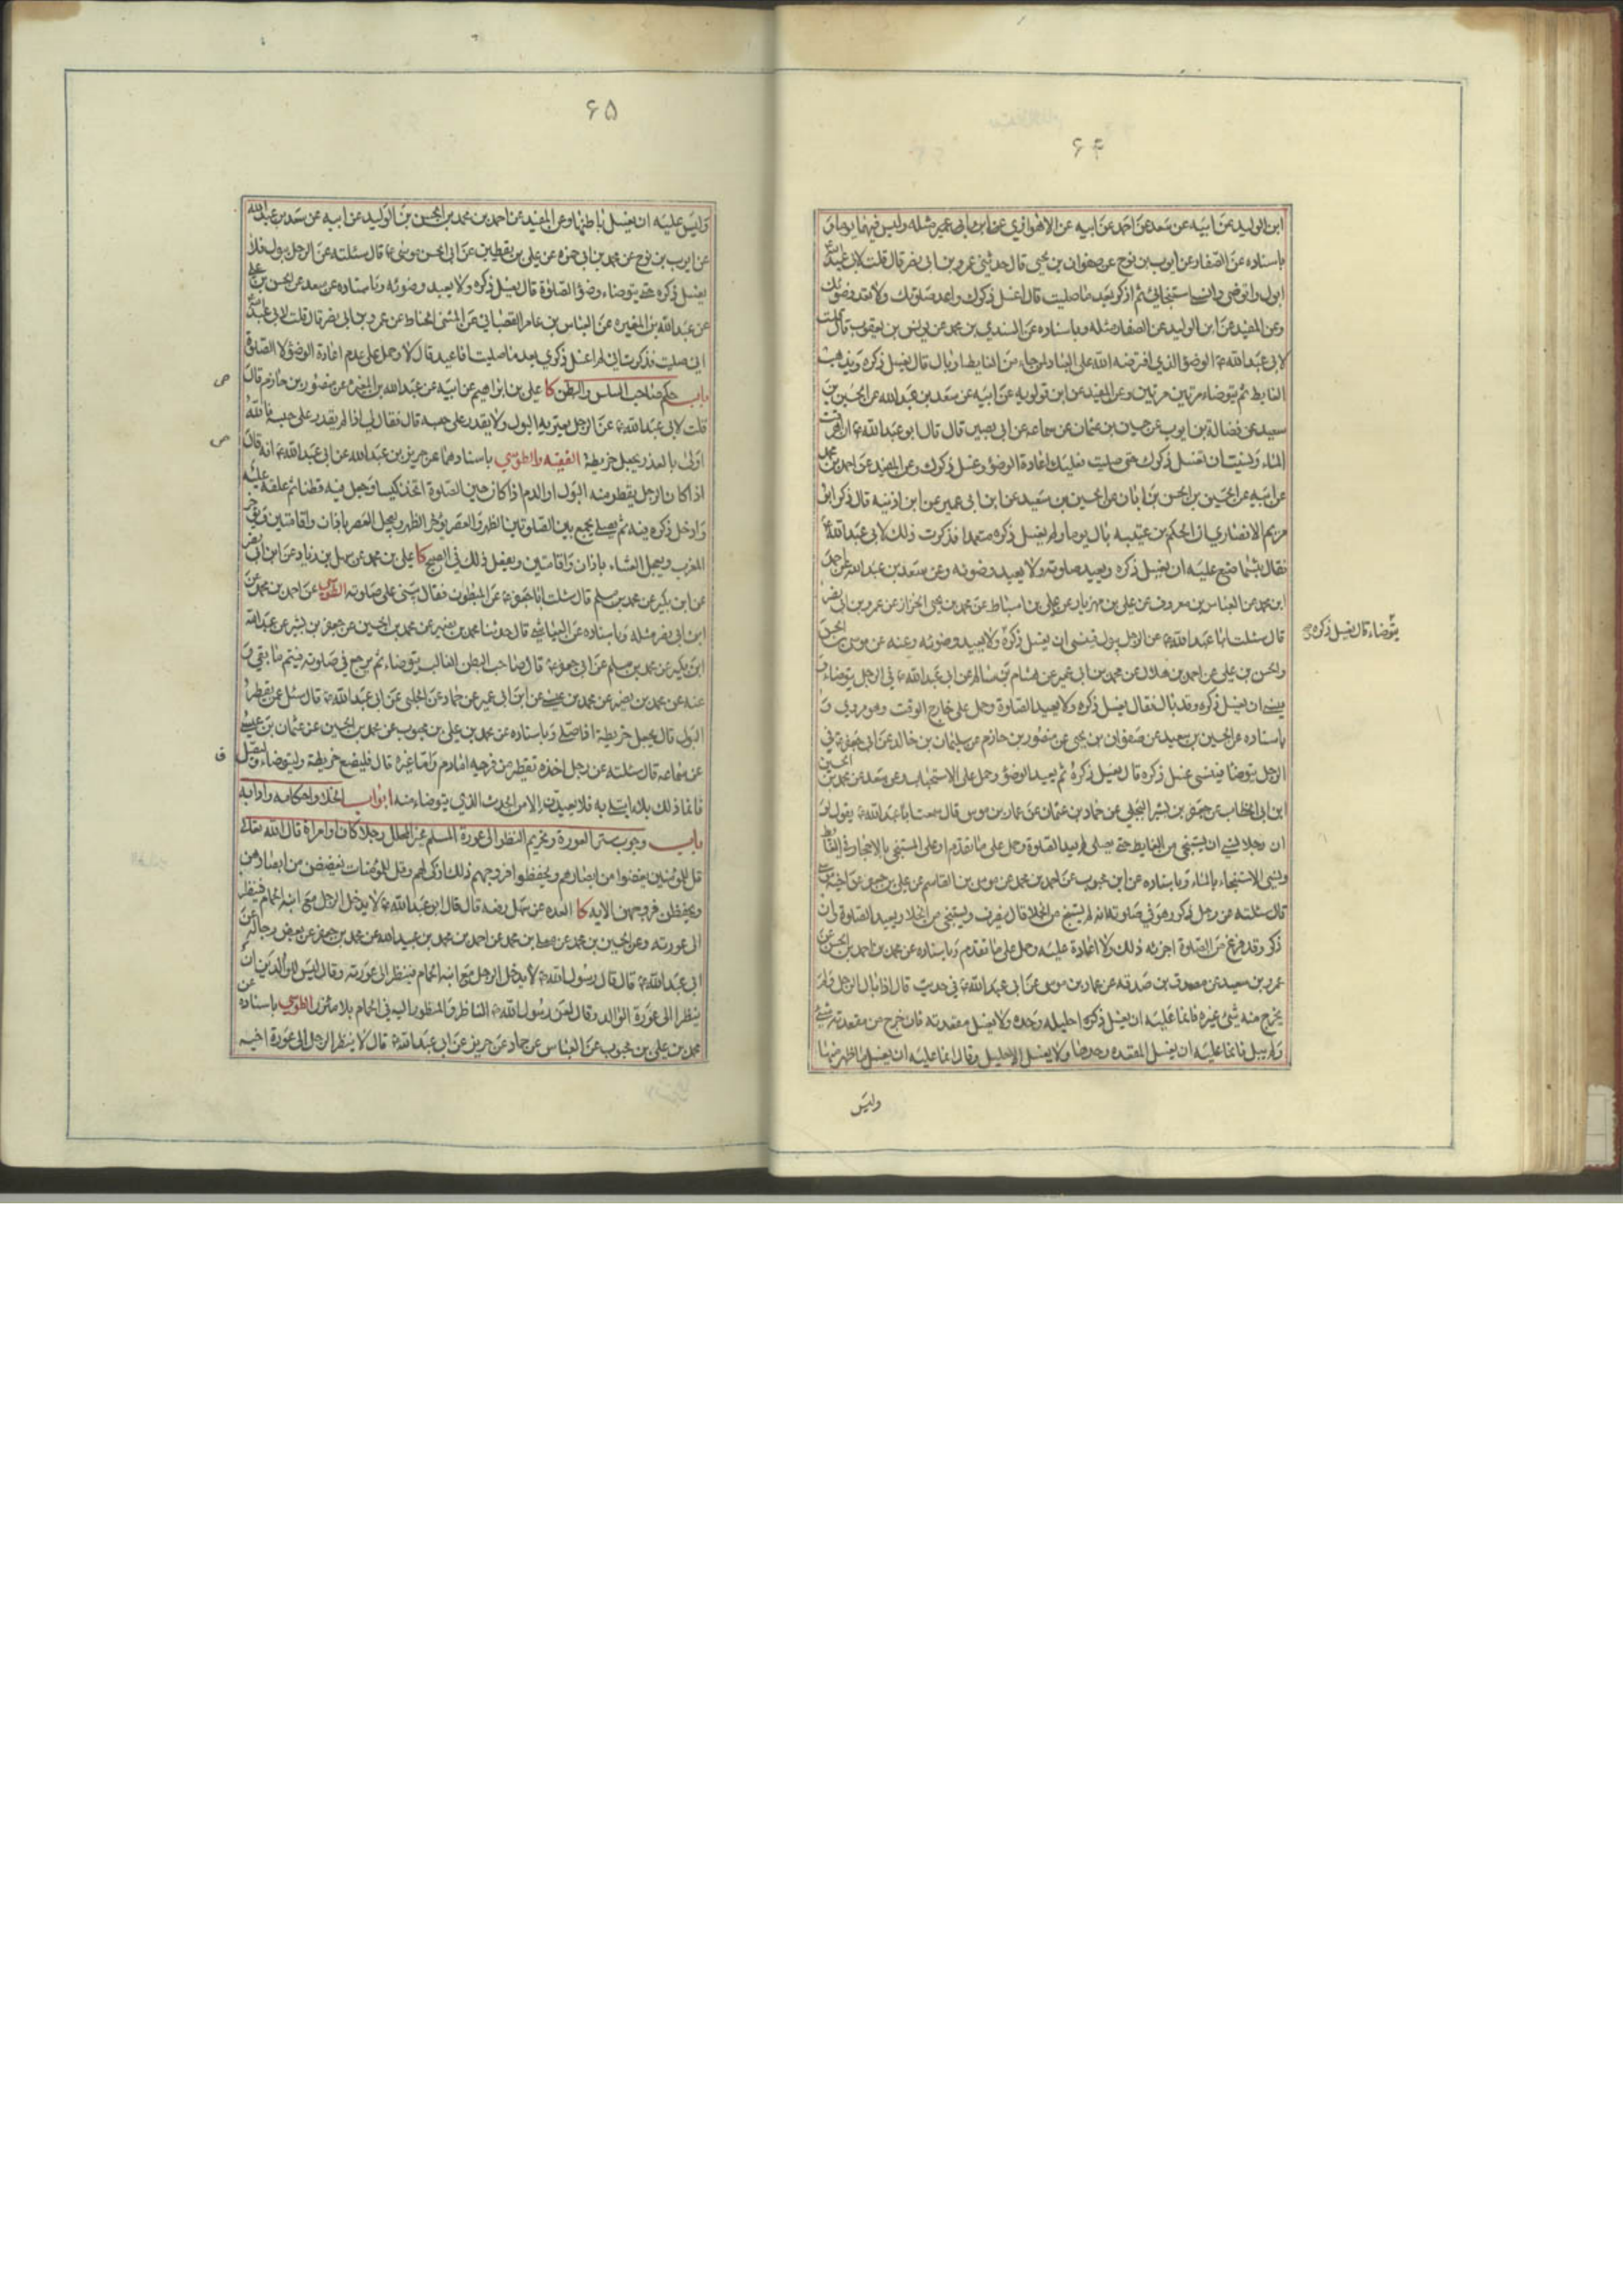 ۶۴
ابن الوليد عن ابيه عن سعد عن احمد عن ابيه عن الاهوازي عن ابن ابي عمير مثله وليس فيهما يوما و
باسناده عن الصفار عن ايوب بن نوح عن صفوان بن يحيى قال حدثني عمرو بن ابي نصر قال قلت لابي عبد الله ع
ابول واتوضى وانسى استنجائي ثم اذكر بعد ما صليت قال اغسل ذكرك واعد صلوتك ولا تعد وضوئك
وعن المفيد عن ابن الوليد عن الصفار مثله وباسناده عن السندي بن محمد عن يونس بن يعقوب قال قلت
لابي عبد الله ع الوضوء الذي افترضه الله على العباد لمن جاء من الغايط او بال قال يغسل ذكره ويذهب
الغايط ثم يتوضاء مرتين مرتين وعن المفيد عن ابن قولويه عن ابيه عن سعد بن عبد الله عن الحسين بن
سعيد عن فضالة بن ايوب عن حسين بن عثمان عن سماعه عن ابي بصير قال قال ابو عبد الله ع ان اهرقت
الماء ونسيت ان تغسل ذكرك حتى صليت فعليك اعادة الوضوء وغسل ذكرك وعن المفيد عن احمد بن محمد
عن ابيه عن الحسين بن الحسن بن ابان عن الحسين بن سعيد عن ابن ابي عمير عن ابن اذنيه قال ذكر ابو
مريم الانصاري ان الحكم بن عتيبه بال يوما ولم يغسل ذكره متعمدا فذكرت ذلك لابي عبد الله ع
فقال بئسما صنع عليه ان يغسل ذكره ويعيد صلوته ولا يعيد وضوئه وعن سعد بن عبد الله عن احمد
ابن محمد عن العباس بن معروف عن علي بن مهزيار عن علي بن اسباط عن محمد بن يحيى الخزاز عن عمرو بن ابي نصر
قال سئلت ابا عبد الله ع عن الرجل يبول فينسى ان يغسل ذكره ولا يعيد وضوئه وعنه عن موسى بن الحسن
يتوضاء قال يغسل ذكره
والحسن بن علي عن احمد بن هلال عن محمد بن ابي عمير عن هشام بن سالم عن ابي عبد الله ع في الرجل يتوضاء و
ينسى ان يغسل ذكره وقد بال فقال يغسل ذكره ولا يعيد الصلوة وحمل على خارج الوقت وهو مروي و
باسناده عن الحسين بن سعيد عن صفوان بن يحيى عن منصور بن حازم عن سليمان بن خالد عن ابي جعفر ع في
الرجل يتوضا فينسى غسل ذكره قال يغسل ذكره ثم يعيد الوضوء وحمل على الاستحباب عن سعد عن محمد بن الحسين
ابن ابي الخطاب عن جعفر بن بشير البجلي عن حماد بن عثمان عن عمار بن موسى قال سمعت ابا عبد الله ع يقول لو
ان رجلا نسي ان يستنجي من الغايط حتى يصلي لم يعد الصلوة وحمل على ما تقدم او على المستنجي بالاحجار في الغايط
ونسي الاستنجاء بالماء وباسناده عن ابن محبوب عن احمد بن محمد عن موسى بن القاسم عن علي بن جعفر عن اخيه موسى
قال سئلته عن رجل ذكر وهو في صلوته انه لم يستنج من الخلا قال ينصرف ويستنجي من الخلا ويعيد الصلوة وان
ذكر وقد فرغ من الصلوة اجزئه ذلك ولا اعادة عليه وحمل على ما تقدم وباسناده عن محمد بن احمد بن الحسن عن
عمرو بن سعيد عن مصدق بن صدقه عن عمار بن موسى عن ابي عبد الله ع في حديث قال اذا بال الرجل ولم
يخرج منه شئ غيره فانما عليه ان يغسل ذكره احليله وحده ولا يغسل مقعدته فان خرج من مقعدته شئ
ولم يبل فانما عليه ان يغسل المقعده وحدها ولا يغسل الاحليل وقال انما عليه ان يغسل ما ظهر منها
وليس
۶۵
وليس عليه ان يغسل باطنها وعن المفيد عن احمد بن محمد بن الحسن بن الوليد عن ابيه عن سعد بن عبد الله
عن ايوب بن نوح عن محمد بن ابي حمزه عن علي بن يقطين عن ابي الحسن موسى ع قال سئلته عن الرجل يبول فلا
يغسل ذكره حتى يتوضاء وضوء الصلوة قال يغسل ذكره ولا يعيد وضوئه وباسناده عن سعد عن الحسن بن علي
عن عبد الله بن المغيره عن العباس بن عامر القصباني عن المثنى الحناط عن عمرو بن ابي نصر قال قلت لابي عبد الله ع
اني صليت فذكرت اني لم اغسل ذكري بعد ما صليت افاعيد قال لا وحمل على عدم اعادة الوضوء لا الصلوة
باب حكم صاحب السلس والبطن كا علي بن ابراهيم عن ابيه عن عبد الله بن المغيره عن منصور بن حازم قال
ص
قلت لابي عبد الله ع عن الرجل يعتريه البول ولا يقدر على حبسه قال فقال لي اذا لم يقدر على حبسه فالله
اولى بالعذر يجعل خريطة الفقيه والطوسي باسنادهما عن حريز بن عبد الله عن ابي عبد الله ع انه قال
ص
اذا كان الرجل يقطر منه البول او الدم اذا كان حين الصلوة اتخذ كيسا وجعل فيه قطنا ثم علقه عليه
وادخل ذكره فيه ثم يصلي يجمع بين الصلوتين الظهر والعصر يؤخر الظهر ويعجل العصر باذان واقامتين ويؤخر
المغرب ويعجل العشاء باذان واقامتين ويفعل ذلك في الصبح كا علي بن محمد عن سهل بن زياد عن ابن ابي نصر
عن ابن بكير عن محمد بن مسلم قال سئلت ابا جعفر ع عن المبطون فقال يبني على صلوته الطوسي عن احمد بن محمد عن
ابن ابي نصر مثله وباسناده عن العياشي قال حدثنا محمد بن نصير عن محمد بن الحسين عن جعفر بن بشير عن عبد الله
ابن بكير عن محمد بن مسلم عن ابي جعفر ع قال صاحب البطن الغالب يتوضاء ثم يرجع في صلوته فيتم ما بقي و
عنه عن محمد بن نصير عن محمد بن عيسى عن ابن ابي عمير عن حماد عن الحلبي عن ابي عبد الله ع قال سئل عن تقطير
البول قال يجعل خريطة اذا صلى وباسناده عن محمد بن علي بن محبوب عن محمد بن الحسين عن عثمان بن عيسى
عن سماعه قال سئلته عن رجل اخذه تقطير من فرجه اما دم واما غيره قال فليضع خريطة وليتوضاء وليصل
ق
فانما ذلك بلاء ابتلي به فلا يعيدن الا من الحدث الذي يتوضاء منه ابواب الخلاء واحكامه وادابه
باب وجوب ستر العورة وتحريم النظر الى عورة المسلم غير المحلل رجلا كان او امراة قال الله تعالى
قل للمؤمنين يغضوا من ابصارهم ويحفظوا فروجهم ذلك ازكى لهم وقل للمؤمنات يغضضن من ابصارهن
ويحفظن فروجهن الايه كا العده عن سهل رفعه قال قال ابو عبد الله ع لا يدخل الرجل مع ابنه الحمام فينظر
الى عورته وعن الحسين بن محمد عن معلى بن محمد عن احمد بن محمد بن عبيد الله عن محمد بن جعفر عن بعض رجاله عن
ابي عبد الله ع قال قال رسول الله ص لا يدخل الرجل مع ابنه الحمام فينظر الى عورته وقال ليس للوالدين ان
ينظرا الى عورة الولد وليس للولد ان ينظر الى عورة الوالد وقال لعن رسول الله ص الناظر والمنظور اليه في الحمام بلا مئزر الطوسي باسناده عن
محمد بن علي بن محبوب عن العباس عن حماد عن حريز عن ابي عبد الله ع قال لا ينظر الرجل الى عورة اخيه